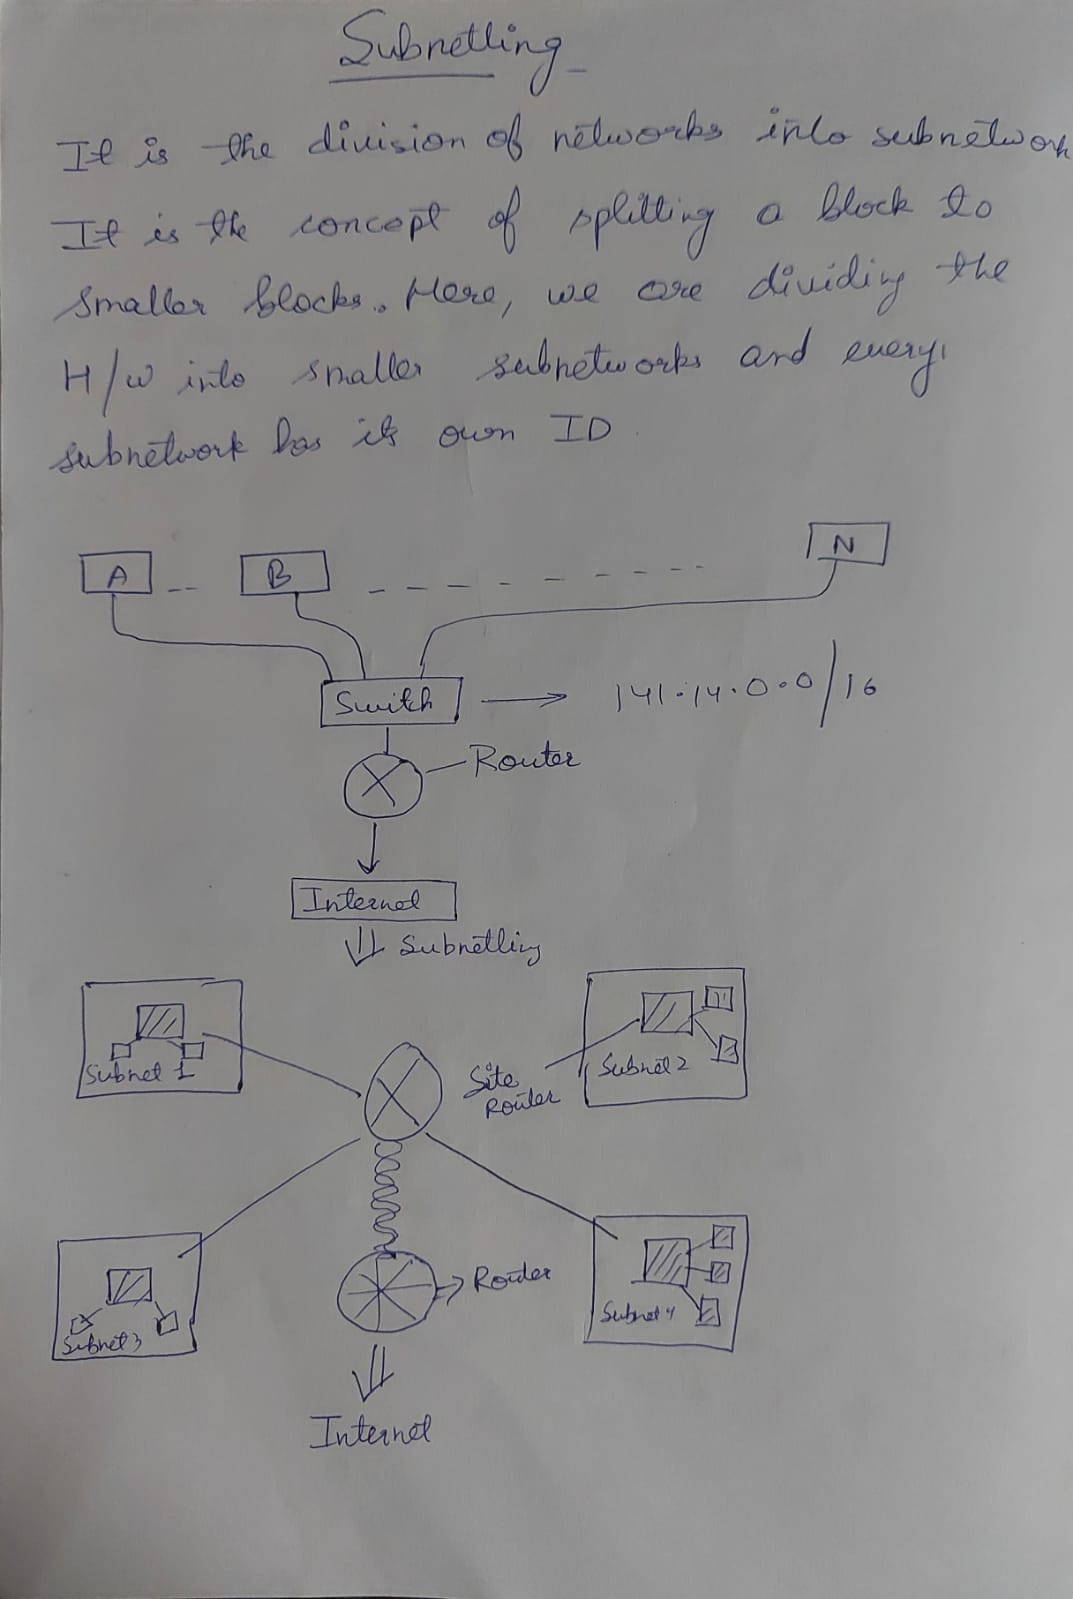 Subnetting
It is the division of networks into subnetwork
It is the concept of splitting a block to
smaller blocks. Here, we are dividing the
H/w into smaller subnetworks and every
subnetwork has its own ID
A B N
Switch 141.14.0.0/16
Router
Internet
Subnetting
Subnet 1
Site
Router
Subnet 2
Subnet 3
Router
Subnet 4
Internet